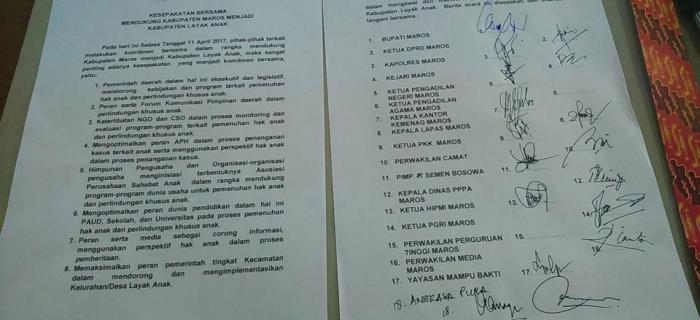 KESEPAKATAN BERSAMA
MENDUKUNG KABUPATEN MAROS MENJADI
KABUPATEN LAYAK ANAK
Pada hari ini Selasa Tanggal 11 April 2017, pihak-pihak terkait
melakukan komitmen bersama dalam rangka mendukung
Kabupaten Maros menjadi Kabupaten Layak Anak, maka sangat
penting adanya kesepakatan yang menjadi komitmen bersama,
yaitu:
1. Pemerintah daerah dalam hal ini eksekutif dan legislatif,
mendorong kebijakan dan program terkait pemenuhan hak
hak anak dan perlindungan khusus anak.
2. Peran serta Forum Komunikasi Pimpinan daerah dalam
perlindungan khusus anak.
3. Keterlibatan NGO dan CSO dalam proses monitoring dan
evaluasi program-program terkait pemenuhan hak anak
dan perlindungan khusus anak.
4. Mengoptimalkan peran APH dalam proses penanganan
kasus terkait anak serta menggunakan perspektif hak anak
dalam proses penanganan kasus.
5. Himpunan Pengusaha dan Organisasi-organisasi
pengusaha menginisiasi terbentuknya Asosiasi
Perusahaan Sahabat Anak dalam rangka mendukung
program-program dunia usaha untuk pemenuhan hak anak
dan perlindungan khusus anak.
6. Mengoptimalkan peran dunia pendidikan dalam hal ini
PAUD, Sekolah, dan Universitas pada proses pemenuhan
hak anak dan perlindungan khusus anak.
7. Peran serta media sebagai corong informasi,
menggunakan perspektif hak anak dalam proses
pemberitaan.
8. Memaksimalkan peran pemerintah tingkat Kecamatan
dalam mendorong dan mengimplementasikan
Kelurahan/Desa Layak Anak.
dalam mengawal dan
Kabupaten Layak Anak. Berita acara ini disepakati dan
tangani bersama :
1. BUPATI MAROS
2. KETUA DPRD MAROS 2.
3. KAPOLRES MAROS 3.
4. KEJARI MAROS 4.
5. KETUA PENGADILAN 5.
NEGERI MAROS
6. KETUA PENGADILAN
AGAMA MAROS
7. KEPALA KANTOR 7.
KEMENAG MAROS
8. KEPALA LAPAS MAROS 8.
9. KETUA PKK MAROS 9.
10. PERWAKILAN CAMAT 10.
11. PIMP. PT SEMEN BOSOWA 11.
12. KEPALA DINAS PPPA 12.
MAROS
13. KETUA HIPMI MAROS 13.
14. KETUA PGRI MAROS 14.
15. PERWAKILAN PERGURUAN 15.
TINGGI MAROS
16. PERWAKILAN MEDIA 16.
MAROS
17. YAYASAN MAMPU BAKTI 17.
18. ANGKASA PURA 18.